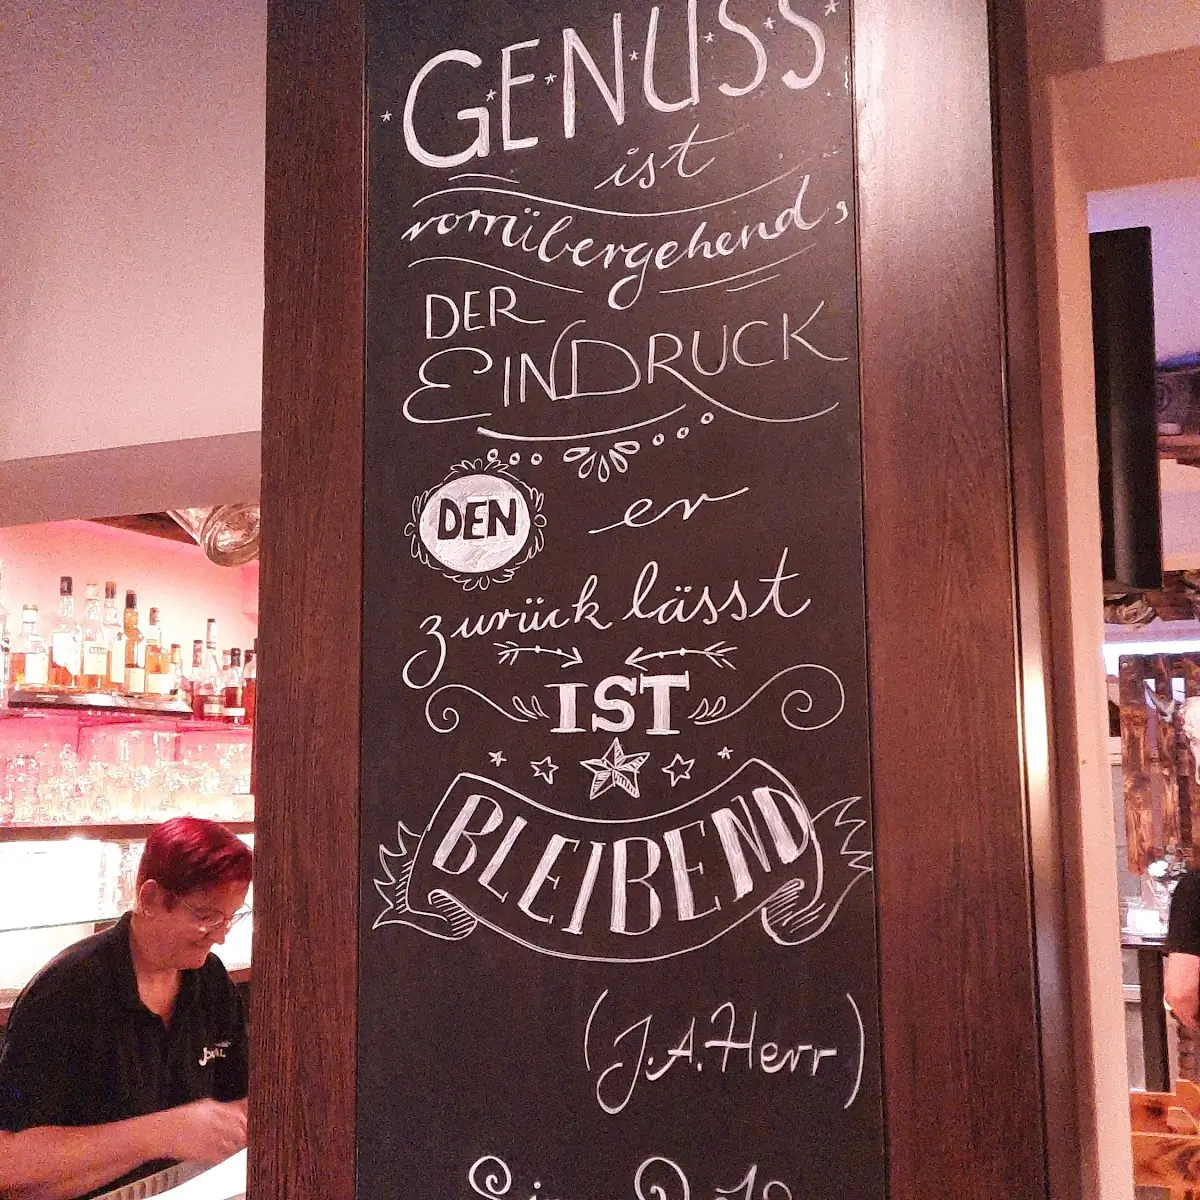 GENUSS
ist
vorrübergehend,
DER
EINDRUCK
DEN er
zurück lässt
IST
BLEIBEND
(J.A.Herr)